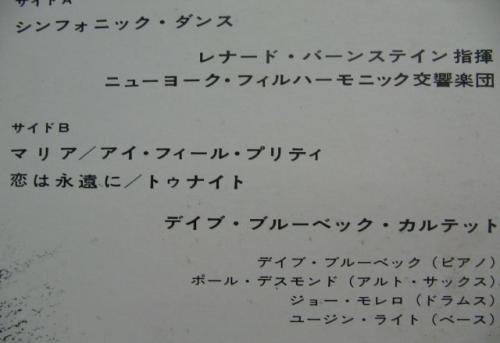 サイドA
シンフォニック・ダンス
レナード・バーンステイン指揮
ニューヨーク・フィルハーモニック交響楽団
サイドB
マリア/アイ・フィール・プリティ
恋は永遠に/トゥナイト
デイブ・ブルーベック・カルテット
デイブ・ブルーベック(ピアノ)
ポール・デスモンド(アルト・サックス)
ジョー・モレロ(ドラムス)
ユージン・ライト(ベース)